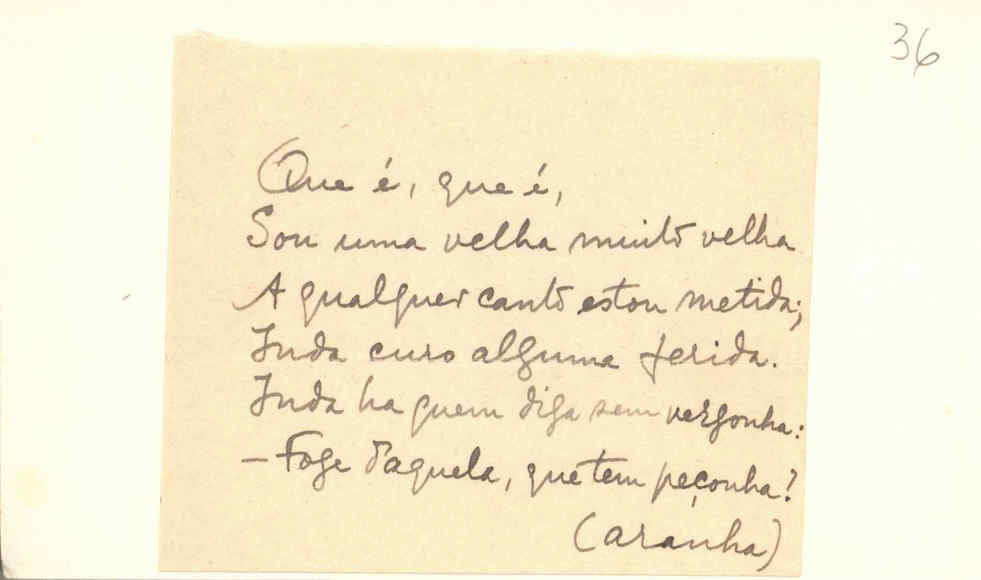 36
Que é, que é,
Sou uma velha muito velha
A qualquer canto estou metida;
Inda curo alguma ferida.
Inda ha quem diga sem vergonha:
– Foge daquela, que tem peçonha?
(aranha)